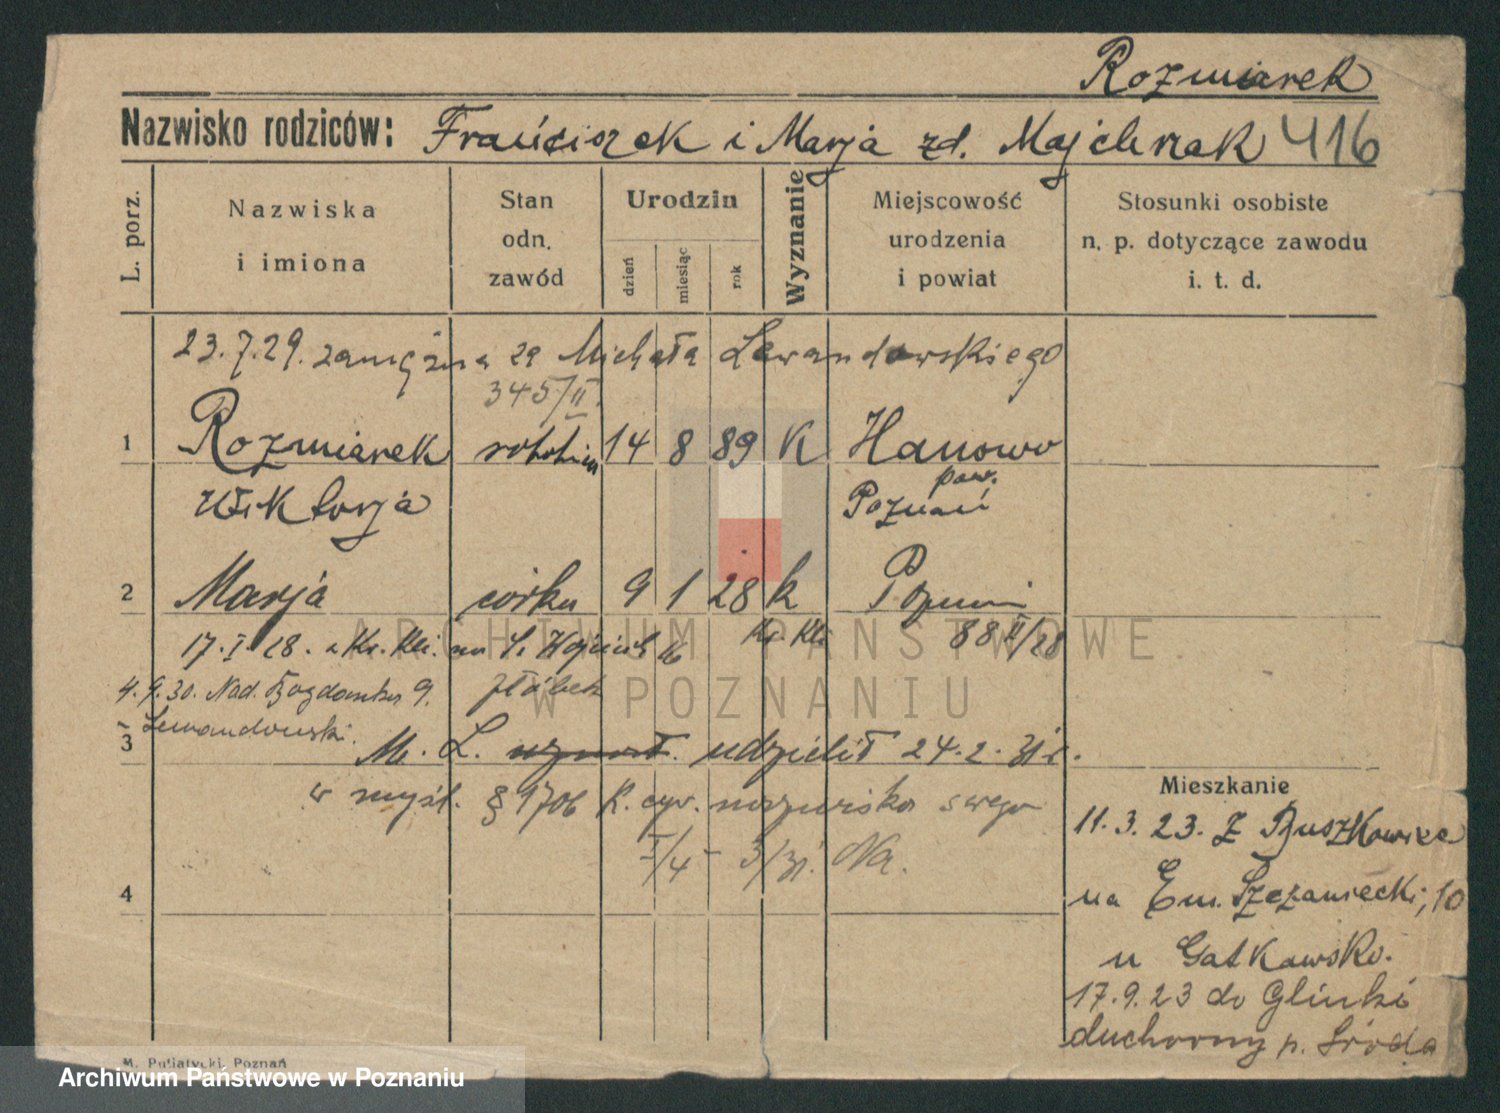 Rozmiarek
Nazwisko rodziców: Franciszek i Marja zd. Majchrzak 416
L. porz.
Nazwiska
i imiona
Stan
odn.
zawód
Urodzin
dzień
miesiąc
rok
Wyznanie
Miejscowość
urodzenia
i powiat
Stosunki osobiste
n. p. dotyczące zawodu
i. t. d.
23.7.29. zamężna za Michała Lewandowskiego
345/II.
1 Rozmiarek robotn 14 8 89 K Hanowo
pow.
Wiktorja Poznań
2 Marja córka 9 1 28 k Poznań
17.I.28. Kr. Kli. na Ś. Wojciech Kr. Kli 88 II/28
żłóbek
4.9.30. Nad. Bogdanka 9.
Lewandowski.
3 M. L. udzielił 24.2.31 r.
w myśl. § 1706 K. cyw. nazwiska swego
I/4 - 3/31. Na.
4
Mieszkanie
11.3.23. Z Buszkowiec
na Em. Szczaniecki, 10
u Gatkawsko.
17.9.23 do Glinki
duchowny p. Środa
M. Putiatycki, Poznań
ARCHIWUM PAŃSTWOWE
W POZNANIU
Archiwum Państwowe w Poznaniu